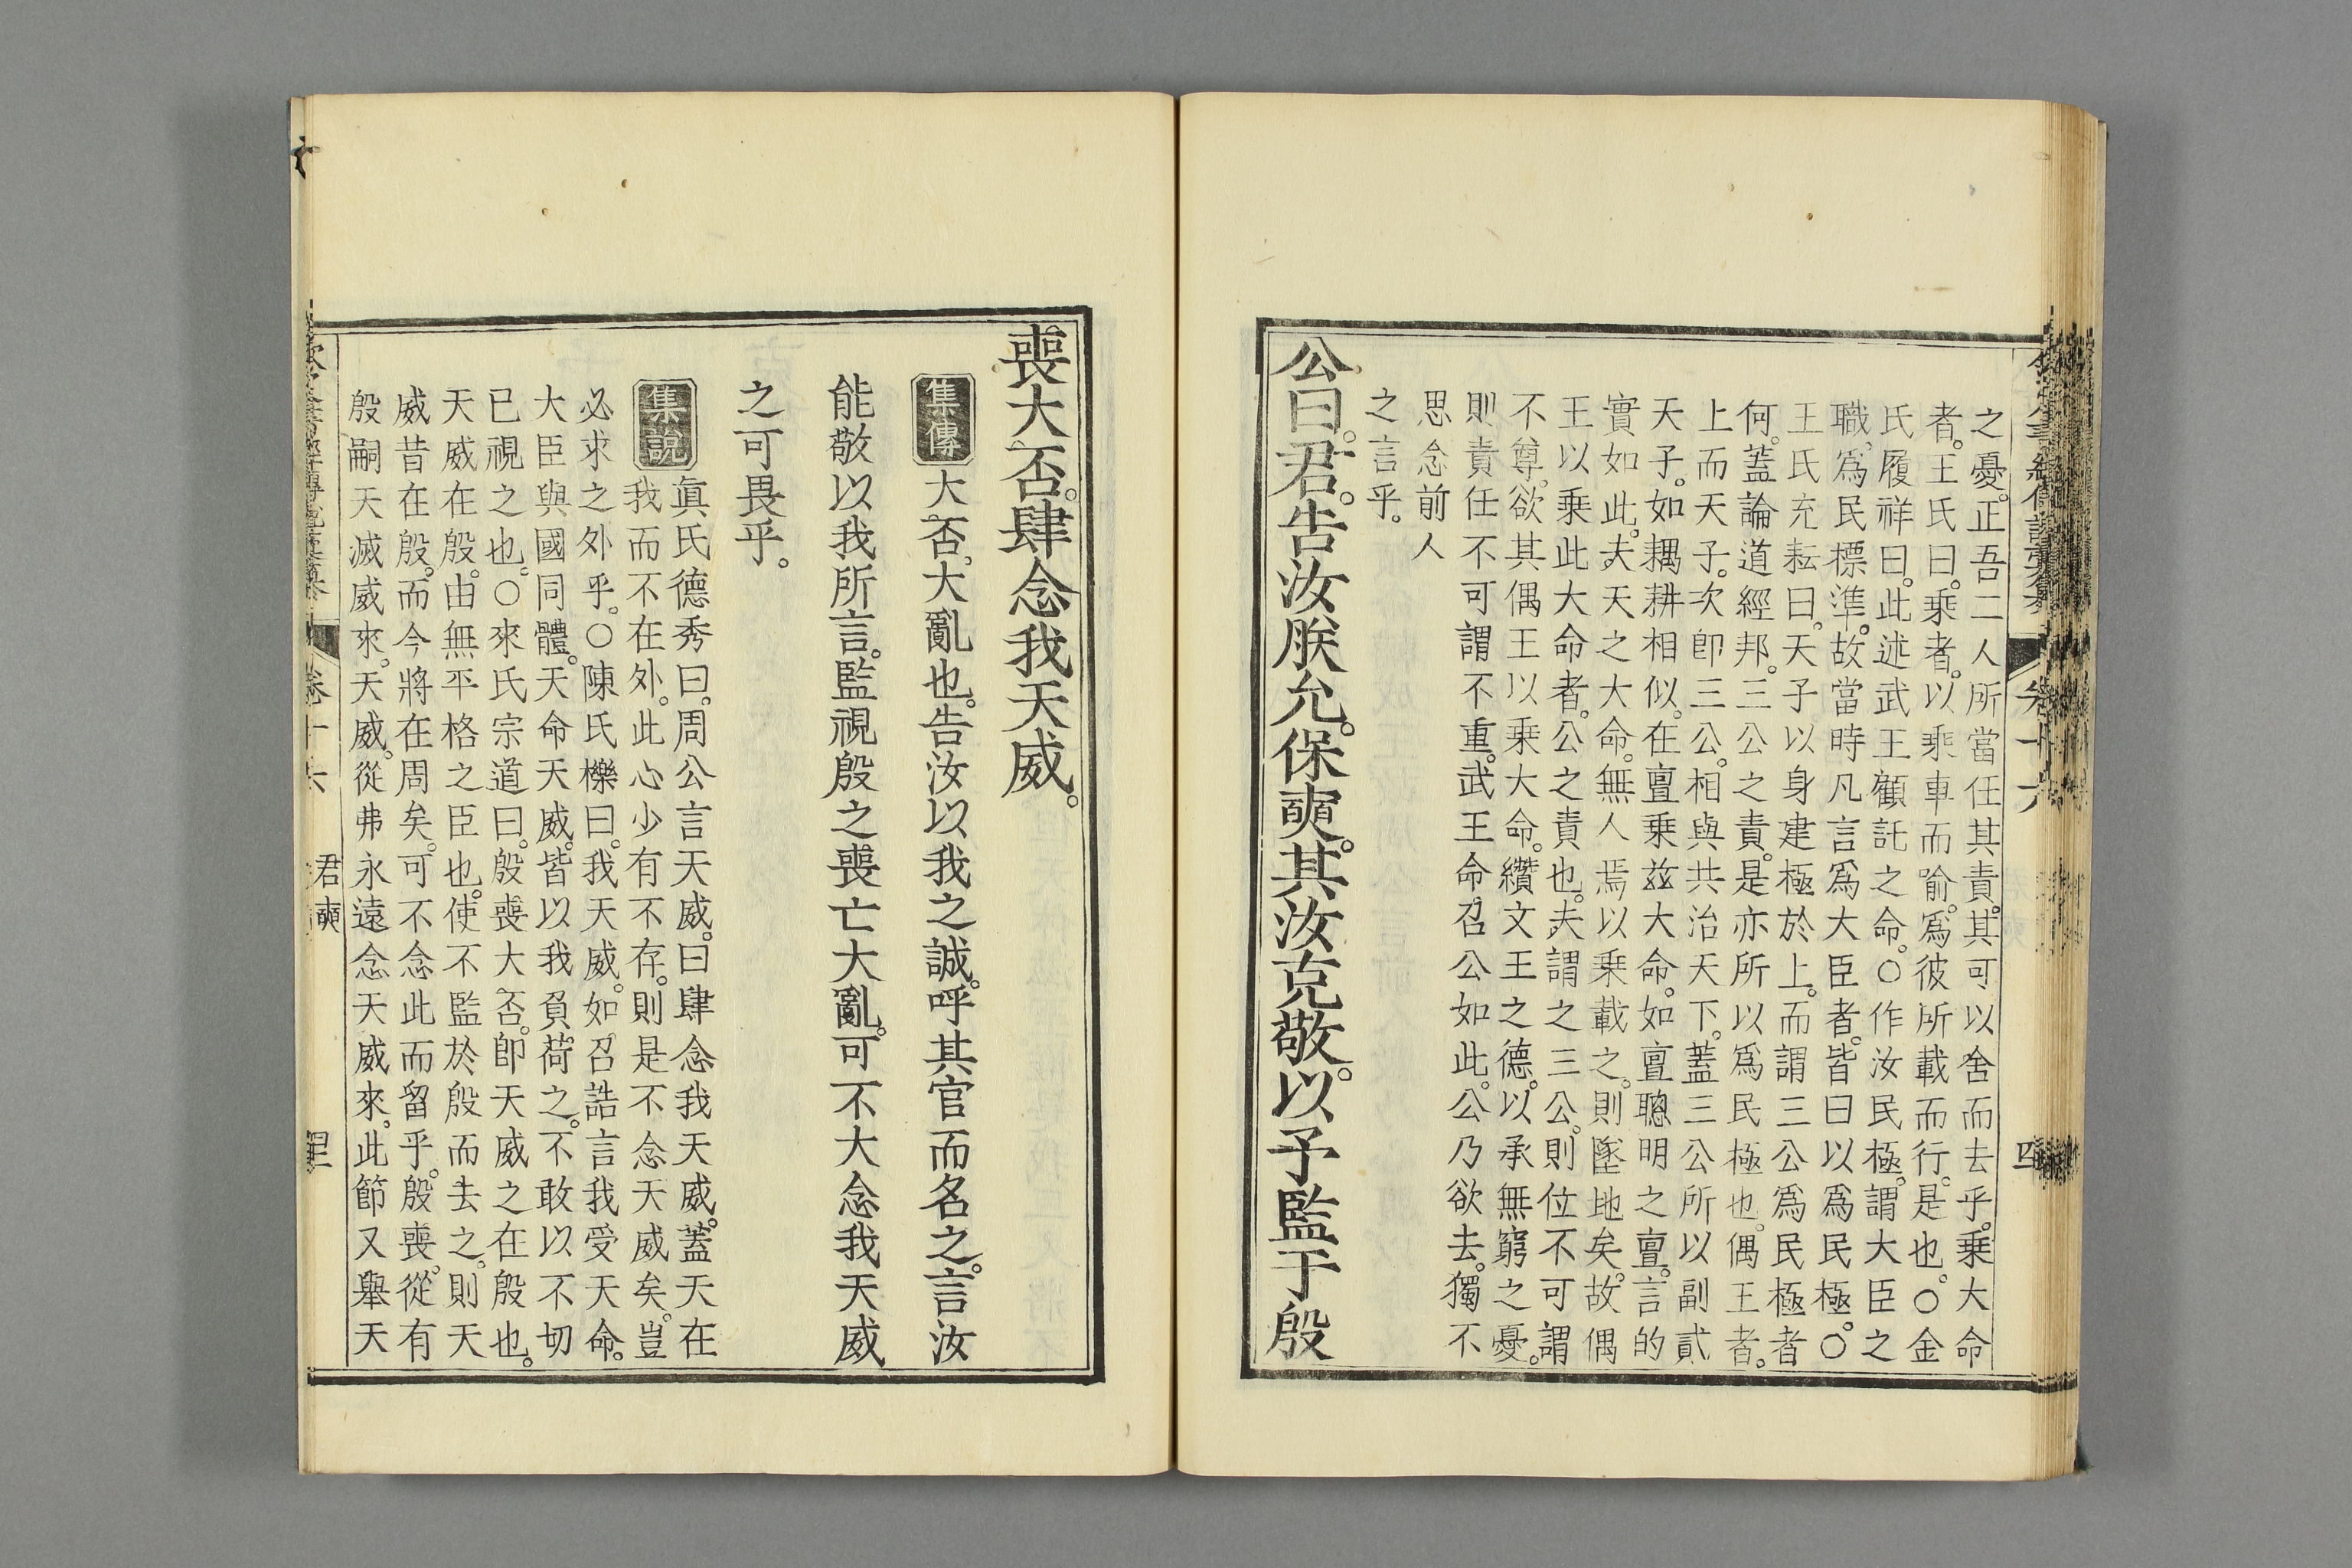 之憂。正吾二人所當任其責。其可以舍而去乎。乘大命
者。王氏曰。乘者。以乘車而喻。爲彼所載而行。是也。○金
氏履祥曰。此述武王顧託之命。○作汝民極。謂大臣之
職。爲民標準。故當時凡言爲大臣者。皆曰以爲民極。○
王氏充耘曰。天子以身建極於上。而謂三公爲民極者
何。蓋論道經邦。三公之責。是亦所以爲民極也。偶王者。
上而天子。次卽三公。相與共治天下。蓋三公所以副貳
天子。如耦耕相似。在亶乘茲大命。如亶聰明之亶。言的
實如此。夫天之大命。無人焉以乘載之。則墜地矣。故偶
王以乘此大命者。公之責也。夫謂之三公。則位不可謂
不尊。欲其偶王以乘大命。纘文王之德。以承無窮之憂。
則責任不可謂不重。武王命召公如此。公乃欲去。獨不
思念前人
之言乎。
公曰。君。告汝朕允。保奭。其汝克敬。以予監于殷
卷十六
喪大否。肆念我天威。
集傳
大否。大亂也。告汝以我之誠。呼其官而名之。言汝
能敬以我所言。監視殷之喪亡大亂。可不大念我天威
之可畏乎。
集說
眞氏德秀曰。周公言天威。曰肆念我天威。蓋天在
我而不在外。此心少有不存。則是不念天威矣。豈
必求之外乎。○陳氏櫟曰。我天威。如召誥言我受天命。
大臣與國同體。天命天威。皆以我負荷之。不敢以不切
已視之也。○來氏宗道曰。殷喪大否。卽天威之在殷也。
天威在殷。由無平格之臣也。使不監於殷而去之。則天
威昔在殷。而今將在周矣。可不念此而留乎。殷喪。從有
殷嗣天滅威來。天威。從弗永遠念天威來。此節又舉天
卷十六
君奭